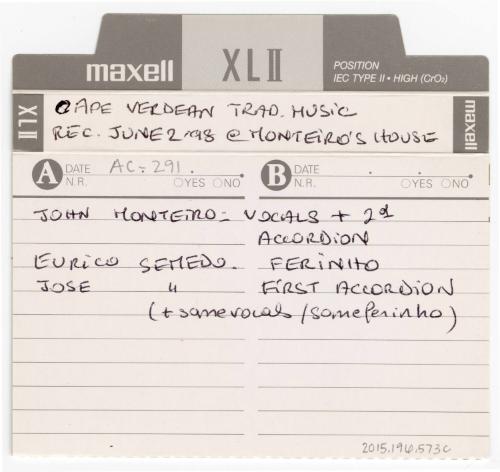 maxell
XLII
POSITION
IEC TYPE II • HIGH (CrO₂)
XLII
CAPE VERDEAN TRAD. MUSIC
REC. JUNE 2 '98 @ MONTEIRO'S HOUSE
maxell
A DATE AC-291. B DATE
N.R. ○YES ○NO N.R. ○YES ○NO
JOHN MONTEIRO - VOCALS + 2d
ACCORDION
EURICO SEMEDO. FERINHO
JOSE " FIRST ACCORDION
(+ some vocals / some ferinho)
2015.196.573c